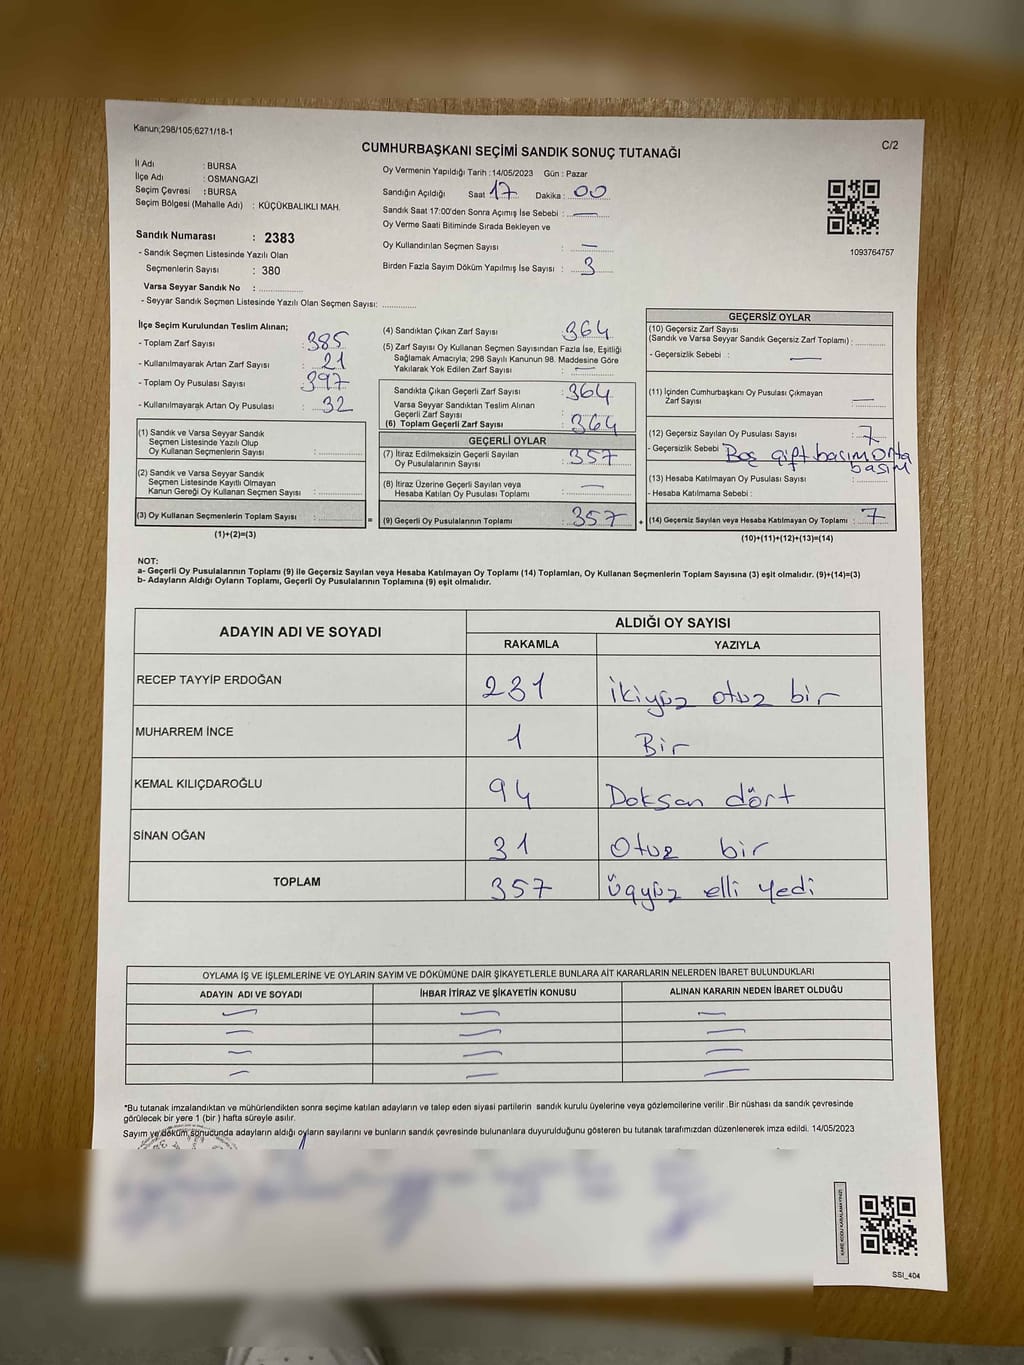 Kanun;298/105;6271/18-1
C/2
CUMHURBAŞKANI SEÇİMİ SANDIK SONUÇ TUTANAĞI
İl Adı : BURSA
İlçe Adı : OSMANGAZİ
Seçim Çevresi : BURSA
Seçim Bölgesi (Mahalle Adı) : KÜÇÜKBALIKLI MAH.
Sandık Numarası : 2383
- Sandık Seçmen Listesinde Yazılı Olan
Seçmenlerin Sayısı : 380
Varsa Seyyar Sandık No :
- Seyyar Sandık Seçmen Listesinde Yazılı Olan Seçmen Sayısı:
Oy Vermenin Yapıldığı Tarih :14/05/2023 Gün : Pazar
Sandığın Açıldığı Saat 17 Dakika : 00
Sandık Saat 17:00'den Sonra Açımış İse Sebebi : —
Oy Verme Saati Bitiminde Sırada Bekleyen ve
Oy Kullandırılan Seçmen Sayısı : —
Birden Fazla Sayım Döküm Yapılmış İse Sayısı : 3
1093764757
İlçe Seçim Kurulundan Teslim Alınan;
- Toplam Zarf Sayısı : 385
- Kullanılmayarak Artan Zarf Sayısı : 21
- Toplam Oy Pusulası Sayısı : 397
- Kullanılmayarak Artan Oy Pusulası : 32
(1) Sandık ve Varsa Seyyar Sandık
Seçmen Listesinde Yazılı Olup
Oy Kullanan Seçmenlerin Sayısı :
(2) Sandık ve Varsa Seyyar Sandık
Seçmen Listesinde Kayıtlı Olmayan
Kanun Gereği Oy Kullanan Seçmen Sayısı :
(3) Oy Kullanan Seçmenlerin Toplam Sayısı : =
(1)+(2)=(3)
(4) Sandıktan Çıkan Zarf Sayısı : 364
(5) Zarf Sayısı Oy Kullanan Seçmen Sayısından Fazla İse, Eşitliği
Sağlamak Amacıyla; 298 Sayılı Kanunun 98. Maddesine Göre
Yakılarak Yok Edilen Zarf Sayısı : —
Sandıkta Çıkan Geçerli Zarf Sayısı : 364
Varsa Seyyar Sandıktan Teslim Alınan
Geçerli Zarf Sayısı :
(6) Toplam Geçerli Zarf Sayısı : 364
GEÇERLİ OYLAR
(7) İtiraz Edilmeksizin Geçerli Sayılan
Oy Pusulalarının Sayısı : 357
(8) İtiraz Üzerine Geçerli Sayılan veya
Hesaba Katılan Oy Pusulası Toplamı : —
(9) Geçerli Oy Pusulalarının Toplamı : 357 +
GEÇERSİZ OYLAR
(10) Geçersiz Zarf Sayısı
(Sandık ve Varsa Seyyar Sandık Geçersiz Zarf Toplamı) :
- Geçersizlik Sebebi : —
(11) İçinden Cumhurbaşkanı Oy Pusulası Çıkmayan
Zarf Sayısı : —
(12) Geçersiz Sayılan Oy Pusulası Sayısı : 7
- Geçersizlik Sebebi Boş çift basım Orta
basım
(13) Hesaba Katılmayan Oy Pusulası Sayısı :
- Hesaba Katılmama Sebebi :
(14) Geçersiz Sayılan veya Hesaba Katılmayan Oy Toplamı : 7
(10)+(11)+(12)+(13)=(14)
NOT:
a- Geçerli Oy Pusulalarının Toplamı (9) ile Geçersiz Sayılan veya Hesaba Katılmayan Oy Toplamı (14) Toplamları, Oy Kullanan Seçmenlerin Toplam Sayısına (3) eşit olmalıdır. (9)+(14)=(3)
b- Adayların Aldığı Oyların Toplamı, Geçerli Oy Pusulalarının Toplamına (9) eşit olmalıdır.
ADAYIN ADI VE SOYADI ALDIĞI OY SAYISI
RAKAMLA YAZIYLA
RECEP TAYYİP ERDOĞAN 231 ikiyüz otuz bir
MUHARREM İNCE 1 Bir
KEMAL KILIÇDAROĞLU 94 Doksan dört
SİNAN OĞAN 31 Otuz bir
TOPLAM 357 üçyüz elli yedi
OYLAMA İŞ VE İŞLEMLERİNE VE OYLARIN SAYIM VE DÖKÜMÜNE DAİR ŞİKAYETLERLE BUNLARA AİT KARARLARIN NELERDEN İBARET BULUNDUKLARI
ADAYIN ADI VE SOYADI İHBAR İTİRAZ VE ŞİKAYETİN KONUSU ALINAN KARARIN NEDEN İBARET OLDUĞU
— — —
— — —
— — —
— — —
*Bu tutanak imzalandıktan ve mühürlendikten sonra seçime katılan adayların ve talep eden siyasi partilerin sandık kurulu üyelerine veya gözlemcilerine verilir .Bir nüshası da sandık çevresinde
görülecek bir yere 1 (bir ) hafta süreyle asılır.
Sayım ve döküm sonucunda adayların aldığı oyların sayılarını ve bunların sandık çevresinde bulunanlara duyurulduğunu gösteren bu tutanak tarafımızdan düzenlenerek imza edildi. 14/05/2023
KARE KODU KARALAMAYINIZ!
SSI_404